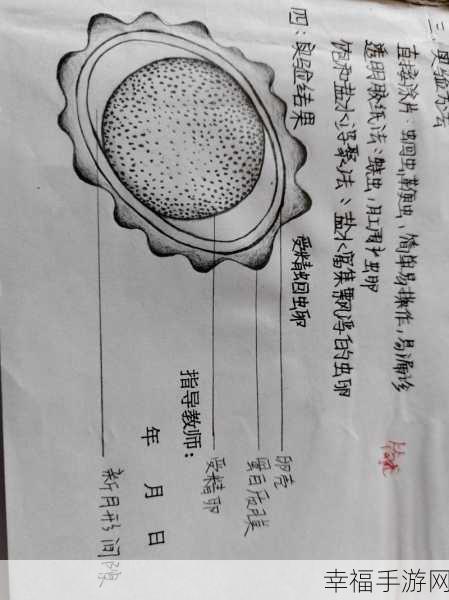 三、实验方法
直接涂片:蛔虫,鞭虫,简单易操作,易漏诊
透明胶纸法:蛲虫,肛周虫卵
饱和盐水浮聚法:盐水富集飘浮的虫卵
四:实验结果
受精蛔虫卵
卵壳
蛋白质膜
受精卵
新月形间隙
指导教师:
年 月 日
幸福手游网